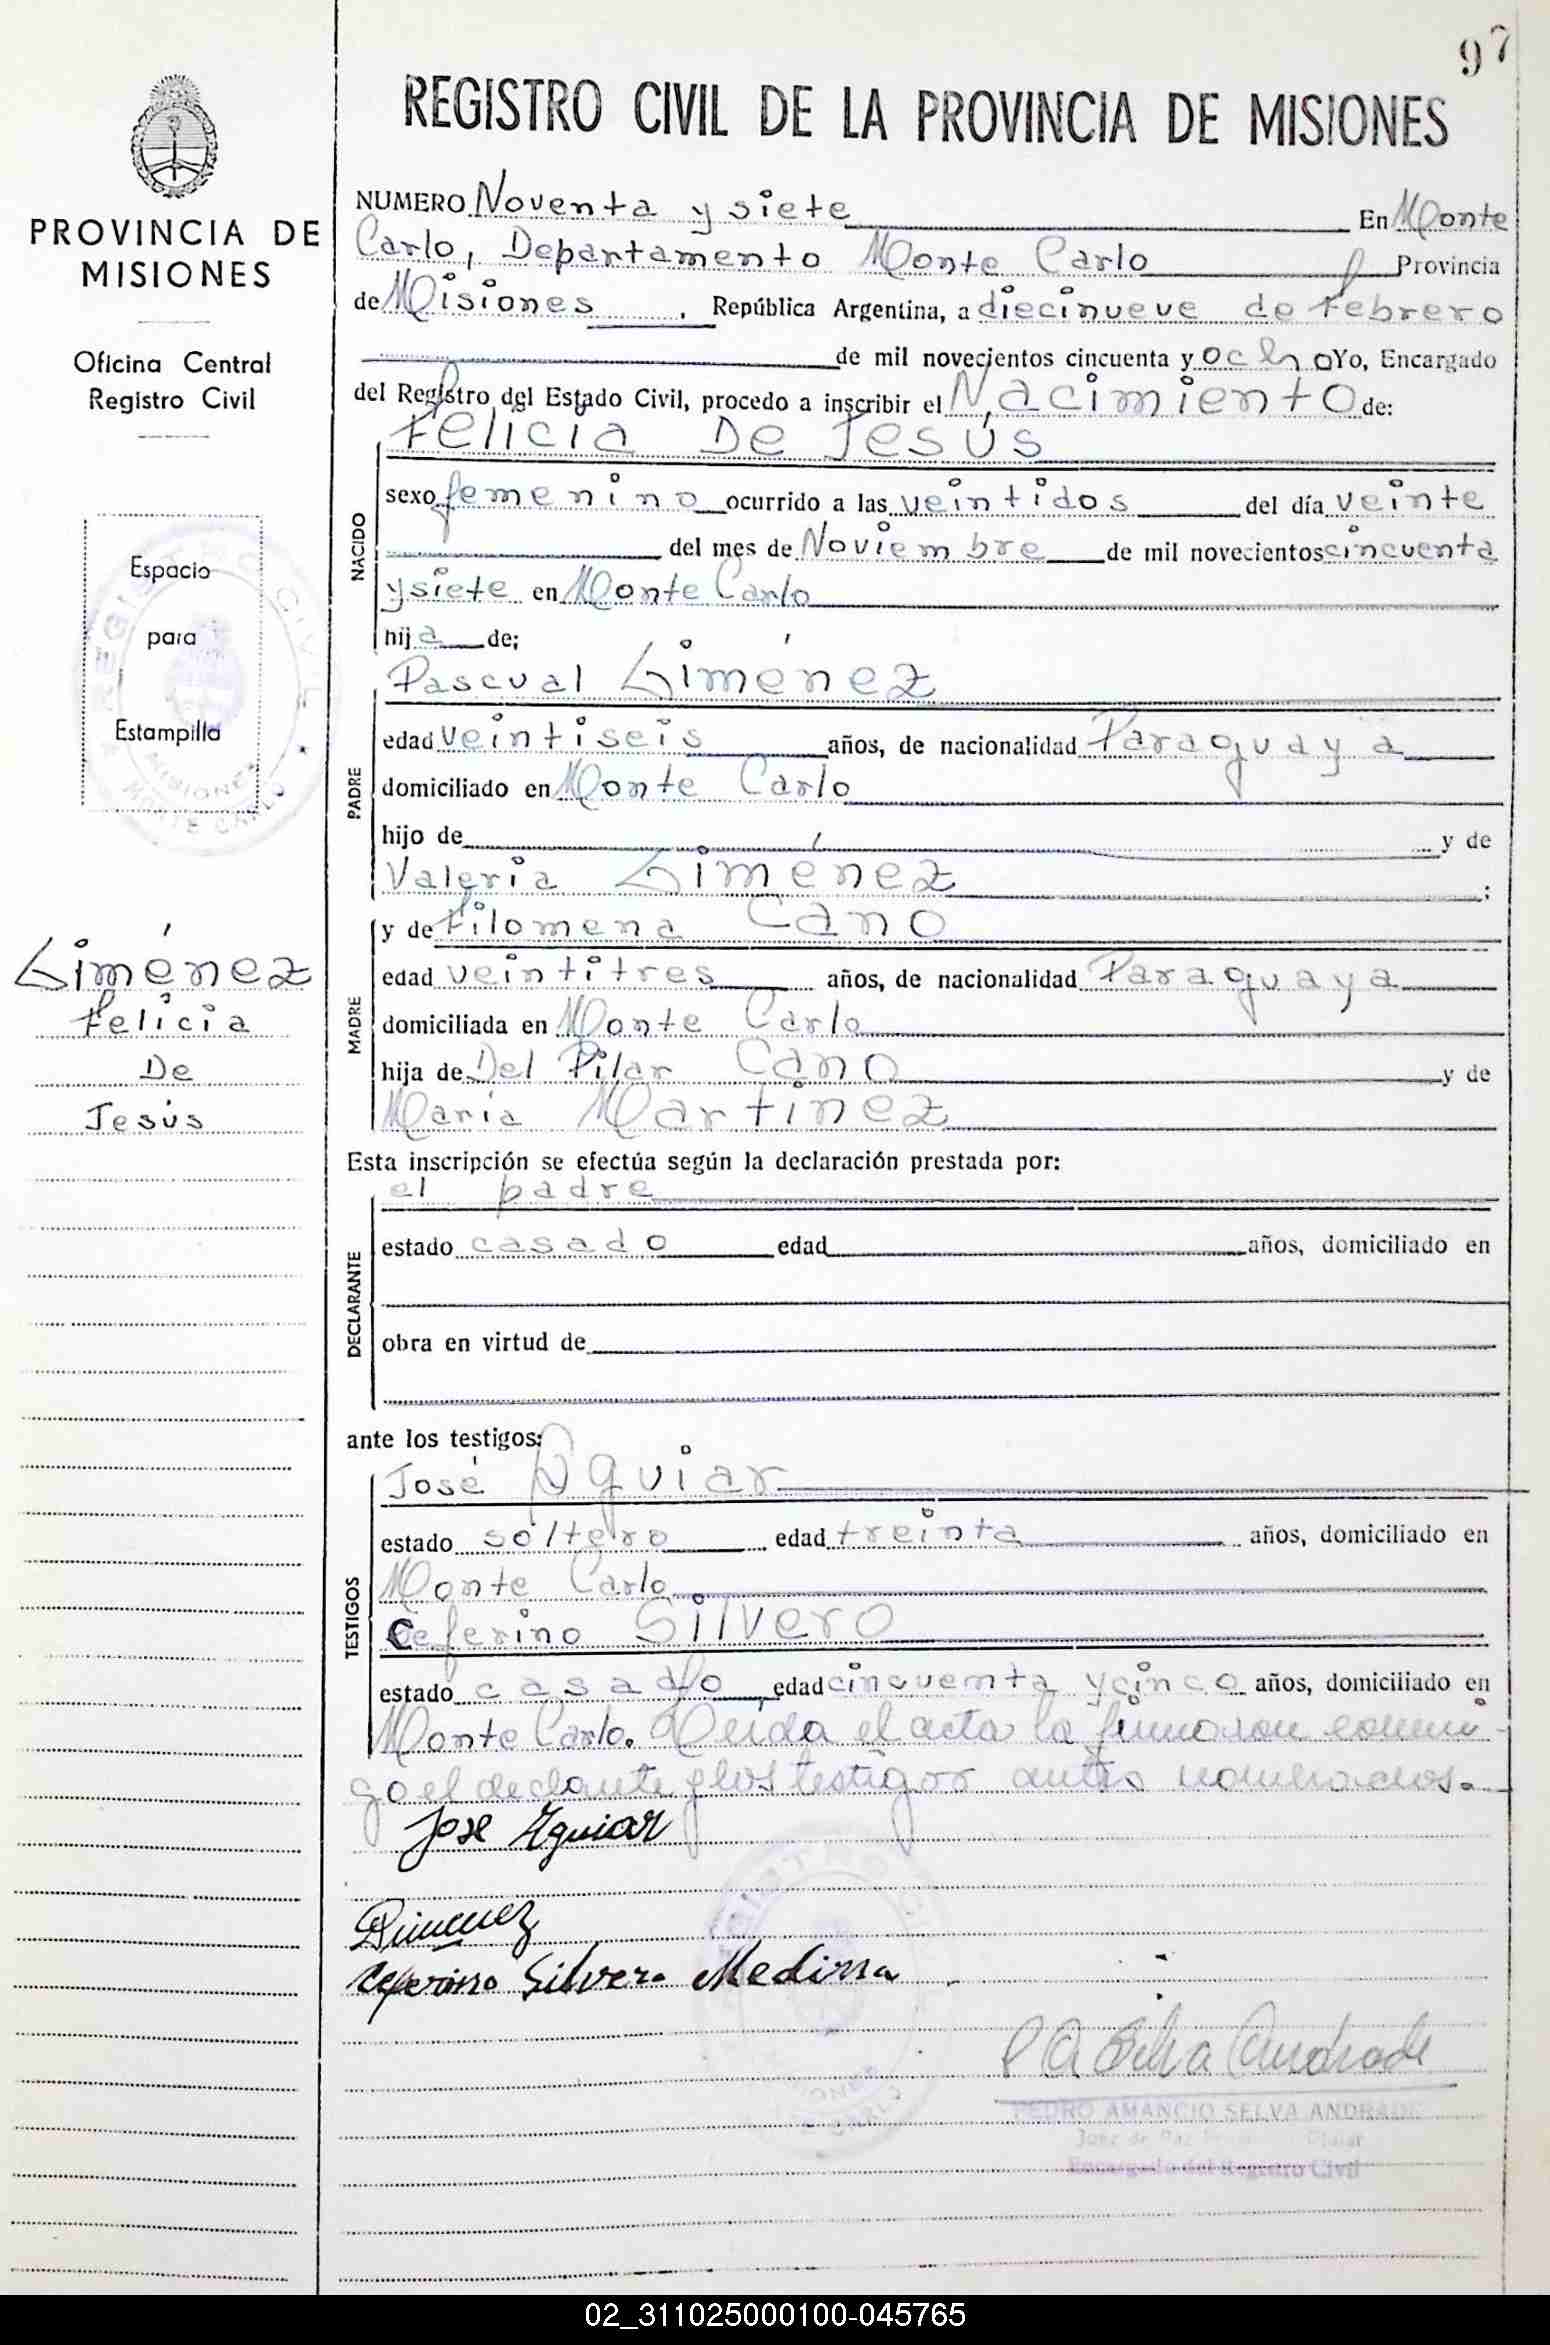 97
REGISTRO CIVIL DE LA PROVINCIA DE MISIONES
PROVINCIA DE
MISIONES
Oficina Central
Registro Civil
Espacio
para
Estampilla
REGISTRO CIVIL
MISIONES
MONTE CARLO
Giménez
Felicia
De
Jesús
NUMERO Noventa y siete En Monte
Carlo, Departamento Monte Carlo Provincia
de Misiones, República Argentina, a diecinueve de febrero
de mil novecientos cincuenta y ocho Yo, Encargado
del Registro del Estado Civil, procedo a inscribir el Nacimiento de:
NACIDO
Felicia De Jesús
sexo femenino ocurrido a las veintidos del día veinte
del mes de Noviembre de mil novecientos cincuenta
y siete en Monte Carlo
hija de;
PADRE
Pascual Giménez
edad veintiseis años, de nacionalidad Paraguaya
domiciliado en Monte Carlo
hijo de y de
Valeria Giménez ;
MADRE
y de Filomena Cano
edad veintitres años, de nacionalidad Paraguaya
domiciliada en Monte Carlo
hija de Del Pilar Cano y de
María Martinez
Esta inscripción se efectúa según la declaración prestada por:
DECLARANTE
el padre
estado casado edad años, domiciliado en
obra en virtud de
ante los testigos:
TESTIGOS
José Aguiar
estado soltero edad treinta años, domiciliado en
Monte Carlo
Ceferino Silvero
estado casado edad cincuenta y cinco años, domiciliado en
Monte Carlo. Leida el acta la firmaron conmi-
go el declarante y los testigos antes nombrados.
Jose Aguiar
Gimenez
Ceferino Silvero Medina
P A Selva Andrade
PEDRO AMANCIO SELVA ANDRADE
Juez de Paz
Encargado del Registro Civil
02_311025000100-045765